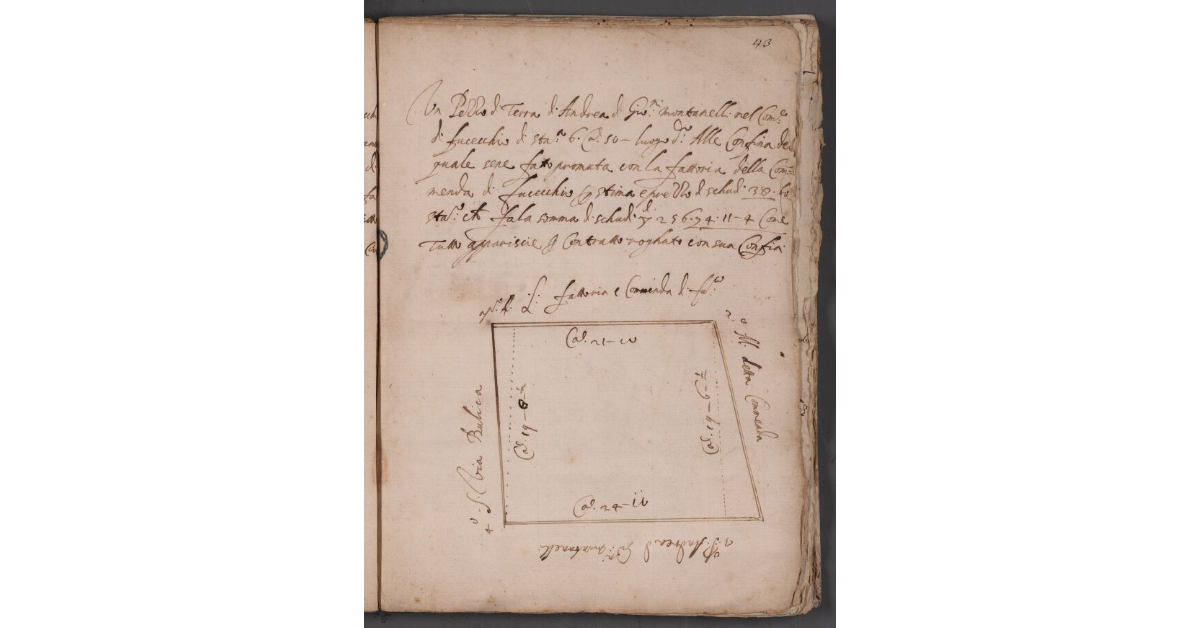 43
Un Pezzo di Terra di Andrea di Gio: montanelli nel Com.e
di fucecchio di sta.a 6. Ca. 50 - luogo d.o Alle Confina del
quale sene fatto promuta con la fattoria della Com
menda di fucecchio p stima e prezzo di schudi 38. lo
sta.o ch fa la somma di schudi 256. 4. 11 - 4 Come
Tutto appariscie p Contratto roghato con sua Confia
p.o A. S: fattoria e Comenda di Fu.o
Ca. 21 - 10
2.o All. detta Comenda
Ca. 19 - 6 - 7
Ca. 19 - 8
4.o S. Via Publica
Ca. 24 - 11
3.o Andrea di Gio: montanelli